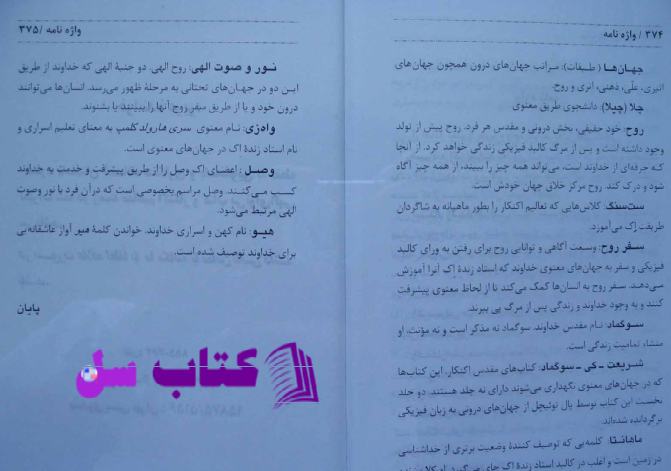 ۳۷۴ / واژه نامه
جهان‌ها (طبقات): مراتب جهان‌های درون همچون جهان‌های
اثیری، علّی، ذهنی، اتری و روح.
چلا (چیلا): دانشجوی طریق معنوی
روح: خود حقیقی، بخش درونی و مقدس هر فرد. روح پیش از تولد
وجود داشته است و پس از مرگ کالبد فیزیکی زندگی خواهد کرد. از آنجا
که جرقه‌ای از خداوند است، می‌تواند همه چیز را ببیند، از همه چیز آگاه
شود و درک کند. روح مرکز خلاق جهان خودش است.
ست‌سنگ: کلاس‌هایی که تعالیم اکنکار را بطور ماهیانه به شاگردان
طریقت اِک می‌آموزد.
سفر روح: وسعت آگاهی و توانایی روح برای رفتن به ورای کالبد
فیزیکی و سفر به جهان‌های معنوی خداوند که استاد زندهٔ اِک آنرا آموزش
می‌دهد. سفر روح به انسان‌ها کمک می‌کند تا از لحاظ معنوی پیشرفت
کنند و به وجود خداوند و زندگی پس از مرگ پی ببرند.
سوگماد: نام مقدس خداوند. سوگماد نه مذکر است و نه مؤنث، او
منشاء تمامیت زندگی است.
شریعت ـ کی ـ سوگماد: کتاب‌های مقدس اکنکار. این کتاب‌ها
که در جهان‌های معنوی نگهداری می‌شوند دارای نه جلد هستند. دو جلد
نخست این کتاب توسط پال توئیچل از جهان‌های درونی به زبان فیزیکی
برگردانده شده‌اند.
ماهانتا: کلمه‌یی که توصیف کنندهٔ وضعیت برتری از خداشناسی
در زمین است و اغلب در کالبد استاد زندهٔ اِک
واژه نامه / ۳۷۵
نور و صوت الهی: روح الهی. دو جنبهٔ الهی که خداوند از طریق
این دو در جهان‌های تحتانی به مرحلهٔ ظهور می‌رسد. انسان‌ها می‌توانند
درون خود و یا از طریق سفر روح آنها را ببینند یا بشنوند.
واه‌زی: نام معنوی سری هارولد کلمپ به معنای تعلیم اسراری و
نام استاد زندهٔ اِک در جهان‌های معنوی است.
وصل: اعضای اِک وصل را از طریق پیشرفت و خدمت به خداوند
کسب می‌کنند. وصل مراسم بخصوصی است که در آن فرد با نور و صوت
الهی مرتبط می‌شود.
هیو: نام کهن و اسراری خداوند. خواندن کلمهٔ هیو آواز عاشقانه‌یی
برای خداوند توصیف شده است.
پایان
کتاب سل